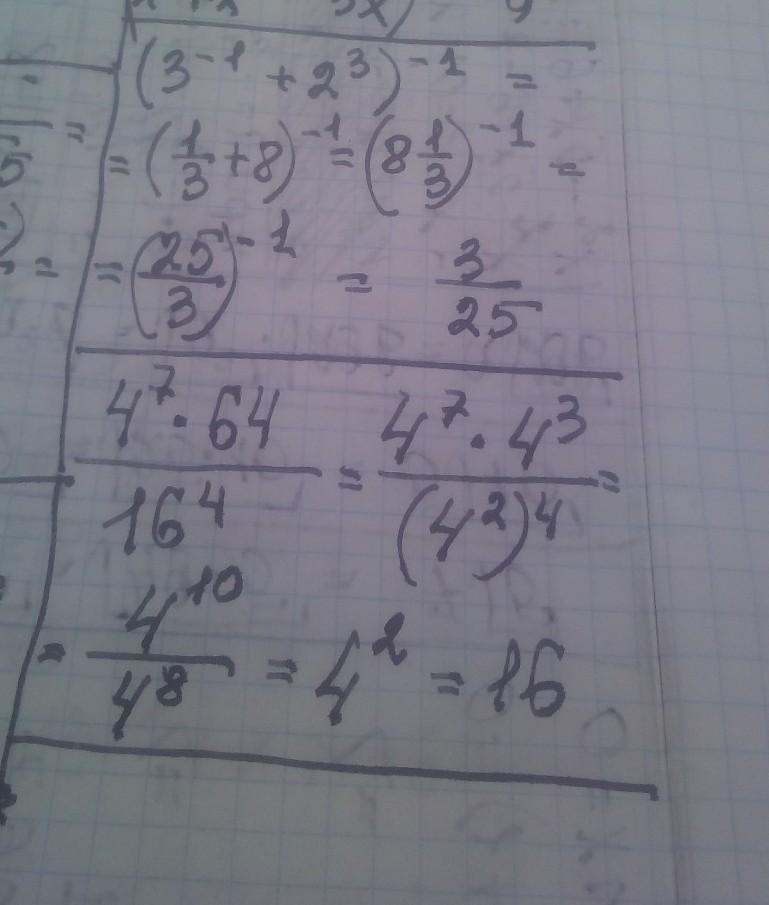 (3⁻¹ + 2³)⁻¹ =
= (1/3 + 8)⁻¹ = (8 1/3)⁻¹ =
= (25/3)⁻¹ = 3/25
4⁷ · 64 / 16⁴ = 4⁷ · 4³ / (4²)⁴ =
= 4¹⁰ / 4⁸ = 4² = 16